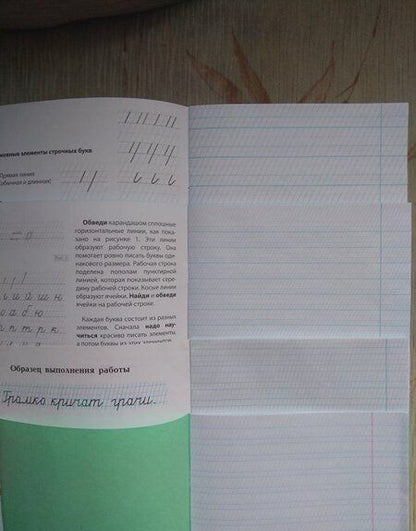 новные элементы строчных букв.
Прямая линия
(обычная и длинная)
Обведи карандашом сплошные
горизонтальные линии, как пока-
зано на рисунке 1. Эти линии
образуют рабочую строку. Она
помогает ровно писать буквы оди-
накового размера. Рабочая строка
поделена пополам пунктирной
линией, которая показывает сере-
дину рабочей строки. Косые линии
образуют ячейки. Найди и обведи
ячейки на рабочей строке.
Каждая буква состоит из разных
элементов. Сначала надо нау-
читься красиво писать элементы,
а потом буквы из этих элементов.
Образец выполнения работы
Громко кричат грачи.